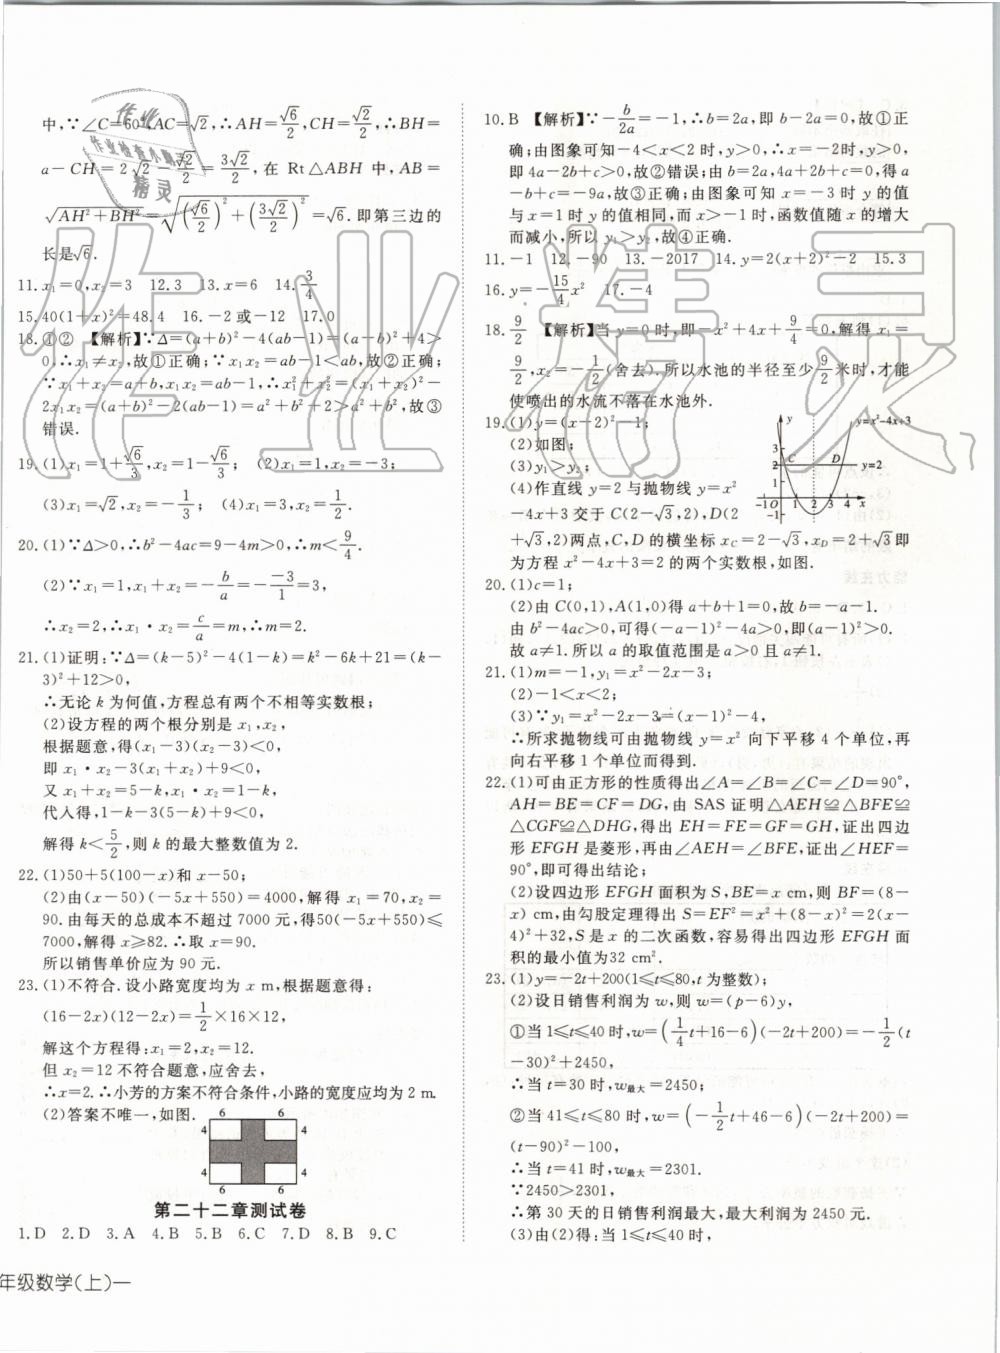 中,∵∠C=60°,AC=√2,∴AH=√6/2,CH=√2/2,∴BH=
a-CH=2√2-√2/2=3√2/2,在 Rt△ABH 中,AB=
√(AH²+BH²)=√((√6/2)²+(3√2/2)²)=√6.即第三边的
长是√6.
11.x₁=0,x₂=3 12.3 13.x=6 14.3/4
15.40(1+x)²=48.4 16.-2或-12 17.0
18.①② 【解析】∵Δ=(a+b)²-4(ab-1)=(a-b)²+4>
0,∴x₁≠x₂,故①正确;∵x₁x₂=ab-1<ab,故②正确;
∵x₁+x₂=a+b,x₁x₂=ab-1,∴x₁²+x₂²=(x₁+x₂)²-
2x₁x₂=(a+b)²-2(ab-1)=a²+b²+2>a²+b²,故③
错误.
19.(1)x₁=1+√6/3,x₂=1-√6/3; (2)x₁=1,x₂=-3;
(3)x₁=√2,x₂=-1/3; (4)x₁=3,x₂=1/2.
20.(1)∵Δ>0,∴b²-4ac=9-4m>0,∴m<9/4.
(2)∵x₁=1,x₁+x₂=-b/a=-(-3)/1=3,
∴x₂=2,∴x₁·x₂=c/a=m,∴m=2.
21.(1)证明:∵Δ=(k-5)²-4(1-k)=k²-6k+21=(k-
3)²+12>0,
∴无论 k 为何值,方程总有两个不相等实数根;
(2)设方程的两个根分别是 x₁,x₂,
根据题意,得(x₁-3)(x₂-3)<0,
即 x₁·x₂-3(x₁+x₂)+9<0,
又 x₁+x₂=5-k,x₁·x₂=1-k,
代入得,1-k-3(5-k)+9<0,
解得 k<5/2,则 k 的最大整数值为 2.
22.(1)50+5(100-x)和 x-50;
(2)由(x-50)(-5x+550)=4000,解得 x₁=70,x₂=
90.由每天的总成本不超过 7000 元,得50(-5x+550)≤
7000,解得 x≥82.∴取 x=90.
所以销售单价应为 90 元.
23.(1)不符合.设小路宽度均为 x m,根据题意得:
(16-2x)(12-2x)=1/2×16×12,
解这个方程得:x₁=2,x₂=12.
但 x₂=12 不符合题意,应舍去,
∴x=2.∴小芳的方案不符合条件,小路的宽度应均为 2 m.
(2)答案不唯一,如图.
6 6
4 4
4 4
6 6
第二十二章测试卷
1.D 2.D 3.A 4.B 5.B 6.C 7.D 8.B 9.C
年级数学(上)一
10.B 【解析】∵-b/2a=-1,∴b=2a,即 b-2a=0,故①正
确;由图象可知-4<x<2 时,y>0,∴x=-2时,y>0,
即 4a-2b+c>0,故②错误;由 b=2a,4a+2b+c=0,得 a
-b+c=-9a,故③正确;由图象可知 x=-3 时 y 的值
与 x=1 时 y 的值相同,而 x>-1 时,函数值随 x 的增大
而减小,所以 y₁>y₂,故④正确.
11.-1 12.-90 13.-2017 14.y=2(x+2)²-2 15.3
16.y=-15/4x² 17.-4
18.9/2 【解析】当 y=0 时,即-x²+4x+9/4=0,解得 x₁=
9/2,x₂=-1/2(舍去).所以水池的半径至少9/2米时,才能
使喷出的水流不落在水池外.
19.(1)y=(x-2)²-1;
(2)如图;
(3)y₁>y₂;
(4)作直线 y=2 与抛物线 y=x²
-4x+3 交于 C(2-√3,2),D(2
y y=x²-4x+3
3
C D y=2
1
-1 O 1 2 3 4 x
-1
+√3,2)两点,C,D 的横坐标 x_C=2-√3,x_D=2+√3即
为方程 x²-4x+3=2 的两个实数根,如图.
20.(1)c=1;
(2)由 C(0,1),A(1,0)得 a+b+1=0,故 b=-a-1.
由 b²-4ac>0,可得(-a-1)²-4a>0,即(a-1)²>0.
故 a≠1.所以 a 的取值范围是 a>0 且 a≠1.
21.(1)m=-1,y₁=x²-2x-3;
(2)-1<x<2;
(3)∵y₁=x²-2x-3=(x-1)²-4,
∴所求抛物线可由抛物线 y=x² 向下平移 4 个单位,再
向右平移 1 个单位而得到.
22.(1)可由正方形的性质得出∠A=∠B=∠C=∠D=90°,
AH=BE=CF=DG,由 SAS 证明△AEH≌△BFE≌
△CGF≌△DHG,得出 EH=FE=GF=GH,证出四边
形 EFGH 是菱形,再由∠AEH=∠BFE,证出∠HEF=
90°,即可得出结论;
(2)设四边形 EFGH 面积为 S,BE=x cm,则 BF=(8-
x) cm,由勾股定理得出 S=EF²=x²+(8-x)²=2(x-
4)²+32,S 是 x 的二次函数,容易得出四边形 EFGH 面
积的最小值为32 cm².
23.(1)y=-2t+200(1≤t≤80,t 为整数);
(2)设日销售利润为 w,则 w=(p-6)y,
①当 1≤t≤40 时,w=(1/4t+16-6)(-2t+200)=-1/2(t
-30)²+2450,
∴当 t=30 时,w最大=2450;
②当 41≤t≤80 时,w=(-1/2t+46-6)(-2t+200)=
(t-90)²-100,
∴当 t=41 时,w最大=2301.
∵2450>2301,
∴第 30 天的日销售利润最大,最大利润为 2450 元.
(3)由(2)得:当 1≤t≤40 时,
作业
作业检查小助手
精灵
作业精灵